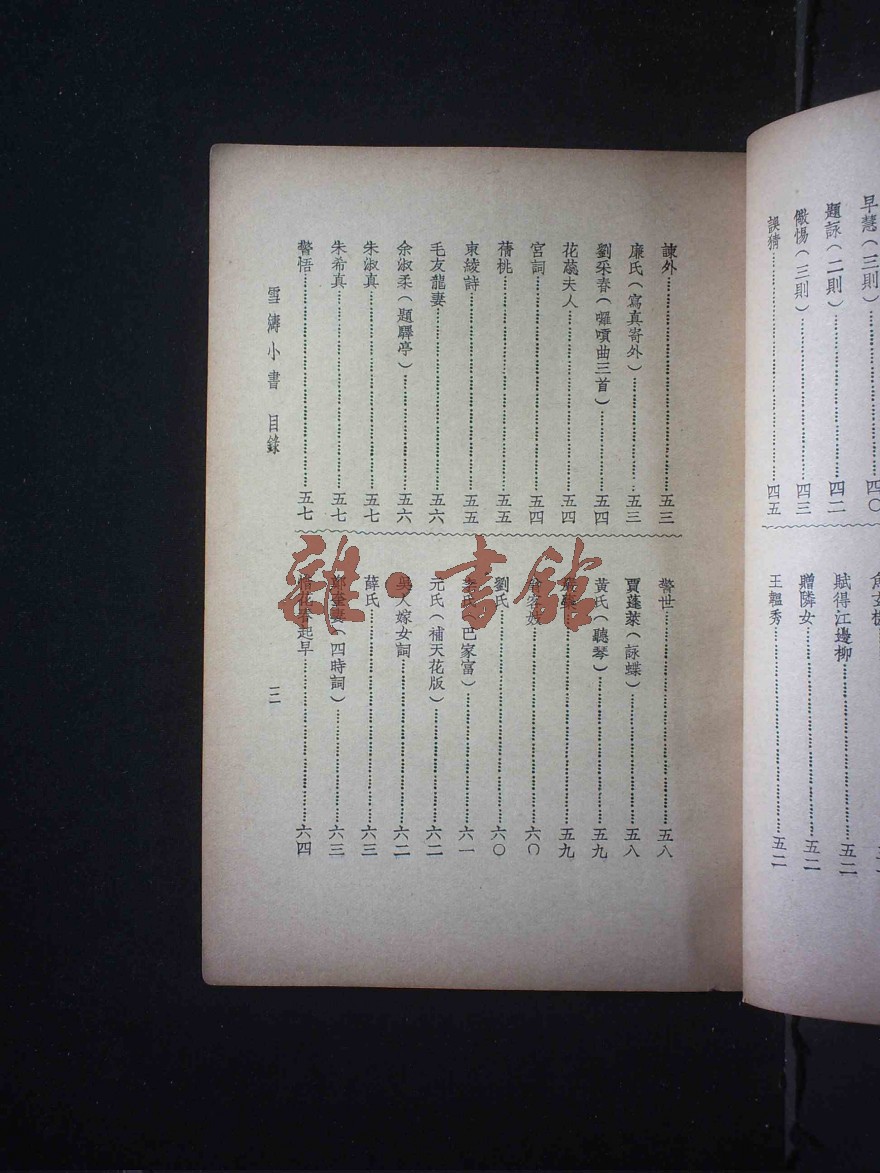 早慧(三則)……四〇
題詠(二則)……四二
儆惕(三則)……四三
誤猜……四五
賦得江邊柳……五二
贈隣女……五二
王韞秀……五二
諫外……五三
廉氏(寫真寄外)……五三
劉采春(囉嗊曲三首)……五四
花蕊夫人……五四
宮詞……五四
蒨桃……五五
東綾詩……五五
毛友龍妻……五六
余淑柔(題驛亭)……五六
朱淑真……五七
朱希真……五七
警悟……五七
警世……五八
賈蓬萊(詠蝶)……五八
黃氏(聽琴)……五九
……五九
……六〇
劉氏……六〇
李氏(巴家富)……六一
元氏(補天花版)……六二
吳人嫁女詞……六二
薛氏……六三
鄭奎妻(四時詞)……六三
惜花春起早……六四
雪濤小書 目錄
三
雜·書館